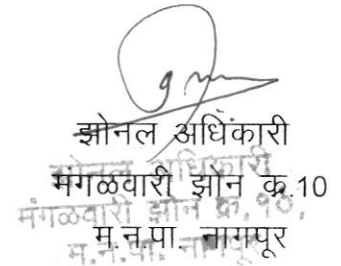 झोनल अधिकारी
मंगळवारी झोन क्र.10
म.न.पा. नागपूर
झोनल अधिकारी
मंगळवारी झोन क्र. १०,
म.न.पा. नागपूर